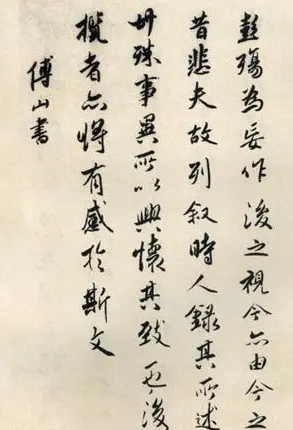 彭殇為妄作後之視今亦由今之
昔悲夫故列叙時人錄其所述
世殊事異所以興懷其致一也後
攬者亦將有感於斯文
傅山書